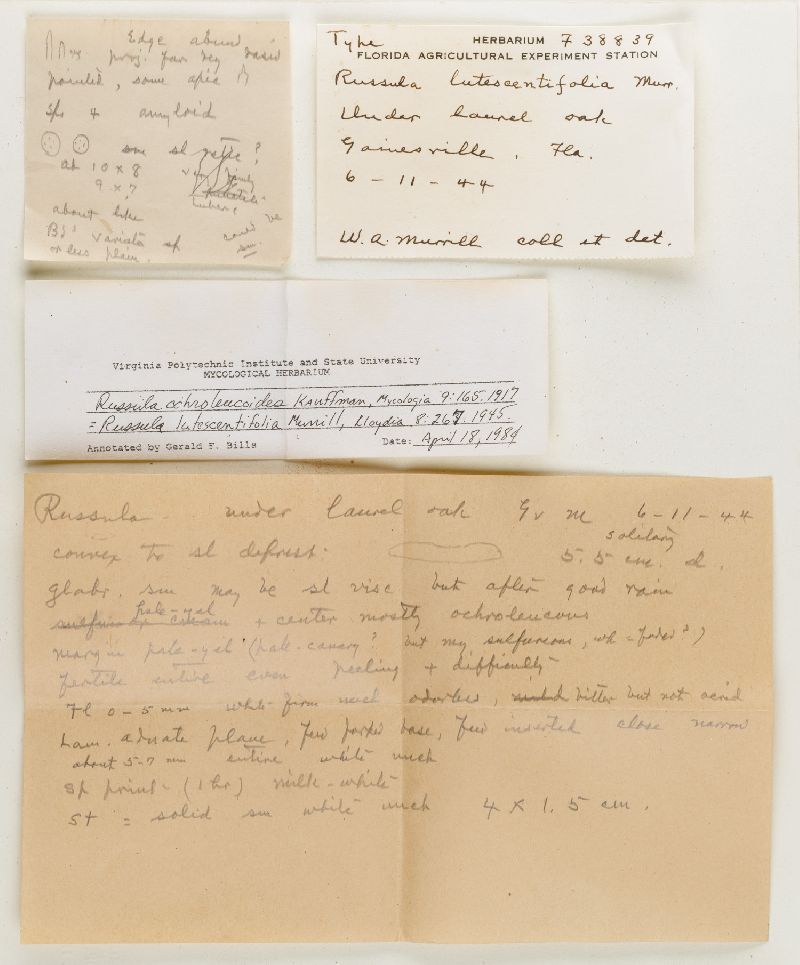 Edge abund
proj. far
pointed, some apic
Sps + amyloid
sm sl retic ?
at 10 x 8
9 x 7
about like
tuberc
BS' variata sp
could be
sm.
or less plain.
Type HERBARIUM F 38839
FLORIDA AGRICULTURAL EXPERIMENT STATION
Russula lutescentifolia Murr.
Under laurel oak
Gainesville, Fla.
6 - 11 - 44
W. A. Murrill coll et det.
Virginia Polytechnic Institute and State University
MYCOLOGICAL HERBARIUM
Russula ochroleucoides Kauffman, Mycologia 9:165.1917
= Russula lutescentifolia Murrill, Lloydia 8:267.1945.
Annotated by Gerald F. Bills Date: April 18, 1984
Russula under laurel oak Gv M 6-11-44
solitary
convex to sl depress. 5.5 cm. d.
glabr. sm may be sl visc but after good rain
pale-yel + center mostly ochroleucous
margin pale-yel (pale-canary? but my sulfureous, wh = faded?)
fertile entire even peeling + difficultly
Fl 0-5 mm white firm unch odorless, bitter but not acrid
Lam. adnate plane, few forked base, few inserted close narrow
about 5-7 mm entire white unch
Sp print (1 hr) milk-white
St = solid sm white unch 4 x 1.5 cm.